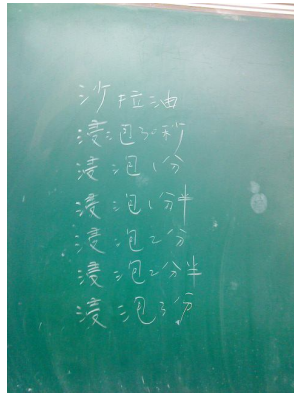 沙拉油
浸泡30秒
浸泡1分
浸泡1分半
浸泡2分
浸泡2分半
浸泡3分